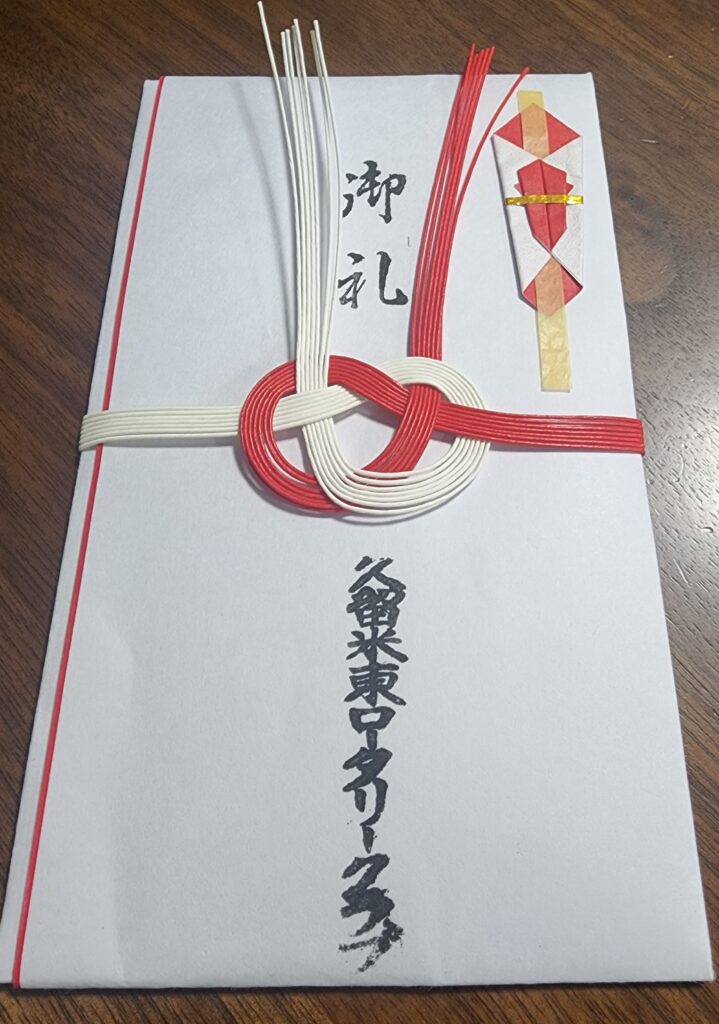 御礼
久留米東ロータリークラブ